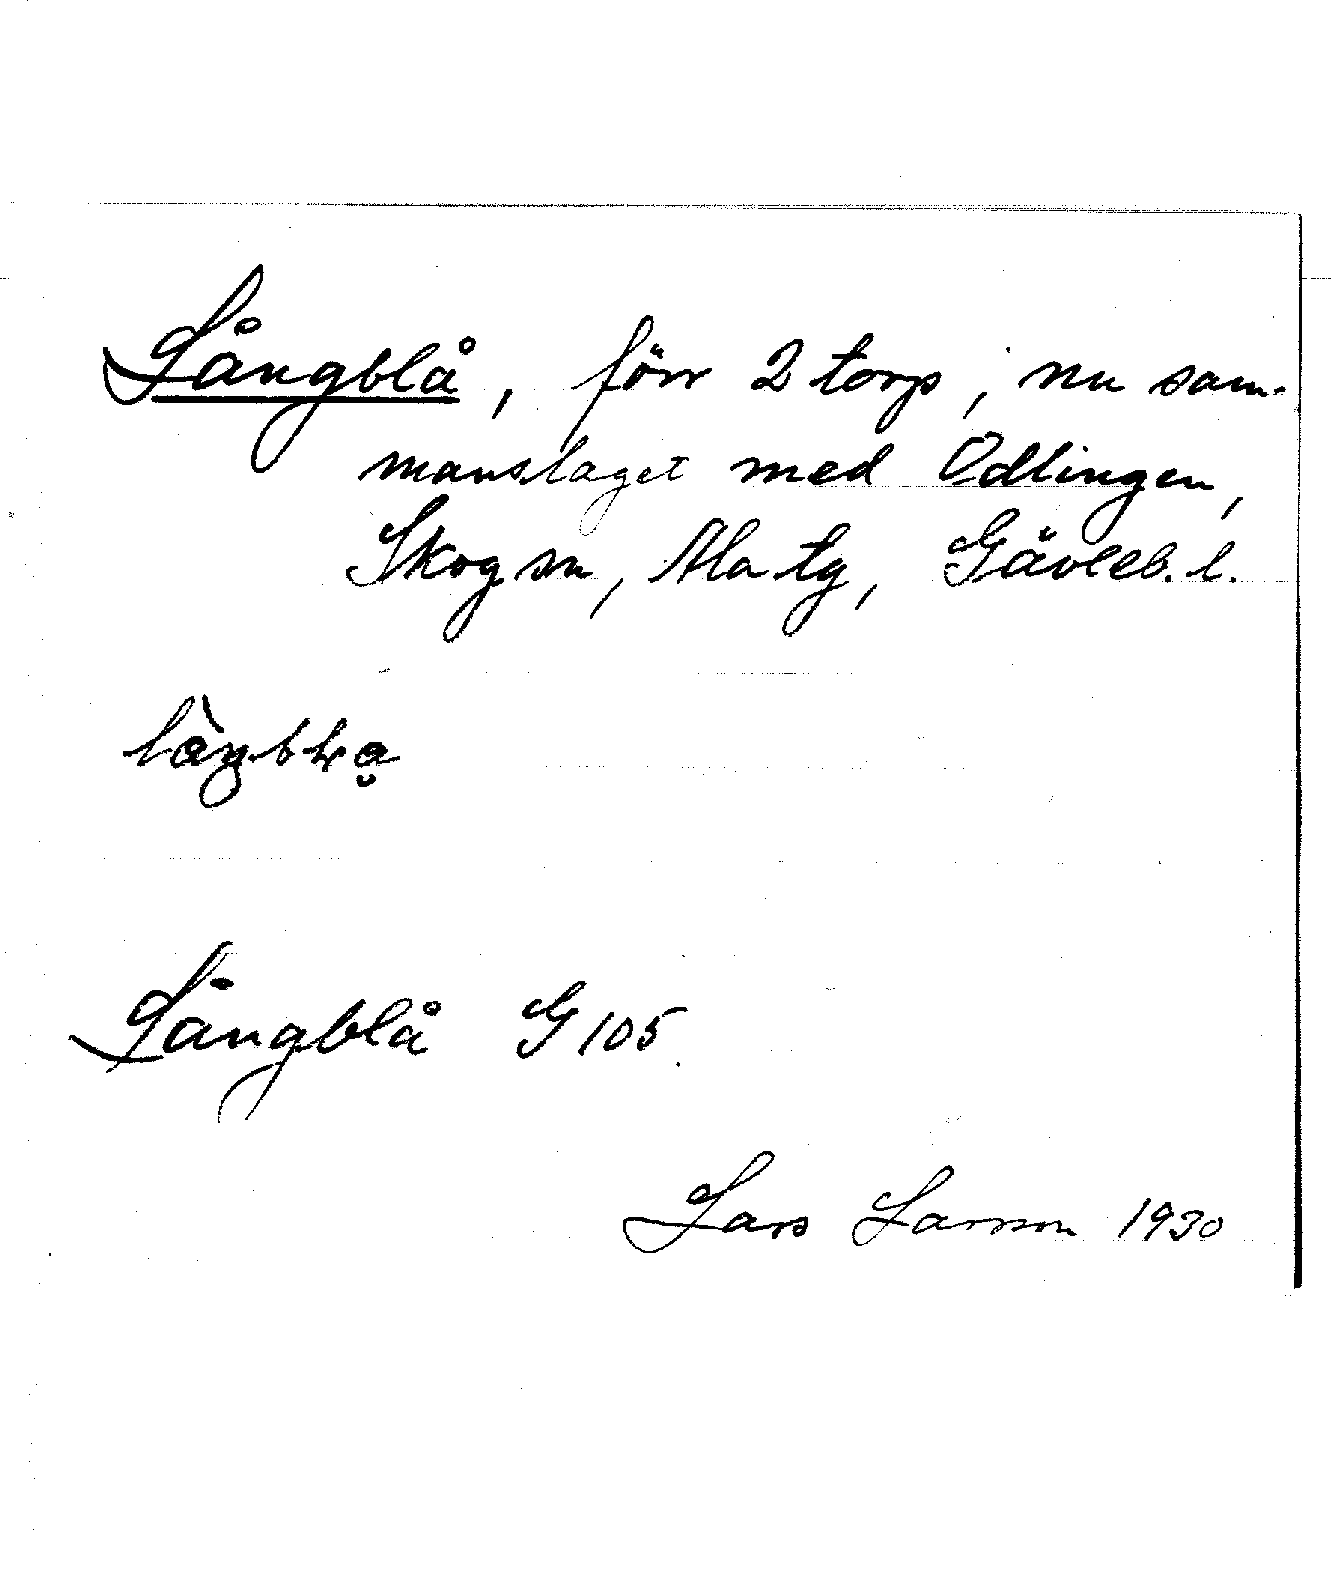 Långblå, förr 2 torp, nu sam-
manslaget med Odlingen,
Skog sn, Ala tg, Gävleb. l.
Långblå G 105
Lars Larsson 1930